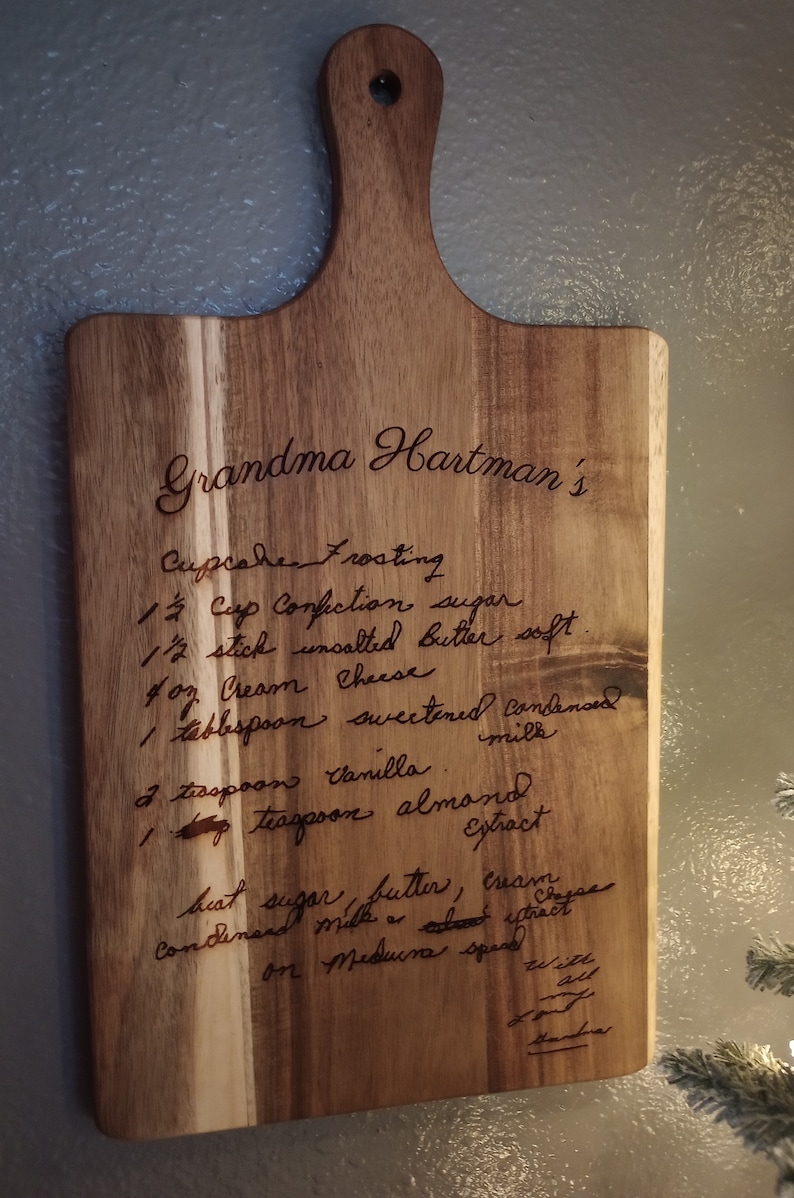 Grandma Hartman's
Cupcake Frosting
1 ½ Cup Confection sugar
1 ½ stick unsalted Butter soft.
4 oz Cream Cheese
1 tablespoon sweetened condensed
milk
2 teaspoon Vanilla
1 teaspoon almond
Extract
beat sugar, butter, cream
Cheese
Condensed milk & extract
on Medium speed
With
all
my
Love
Grandma